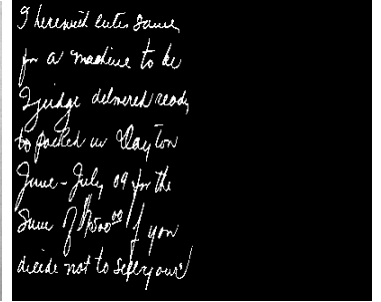 I herewith enter
for a machine to be
I judge delivered ready
to packed in Dayton
June - July 09 for the
Sum of $7500.00 if you
decide not to sell your